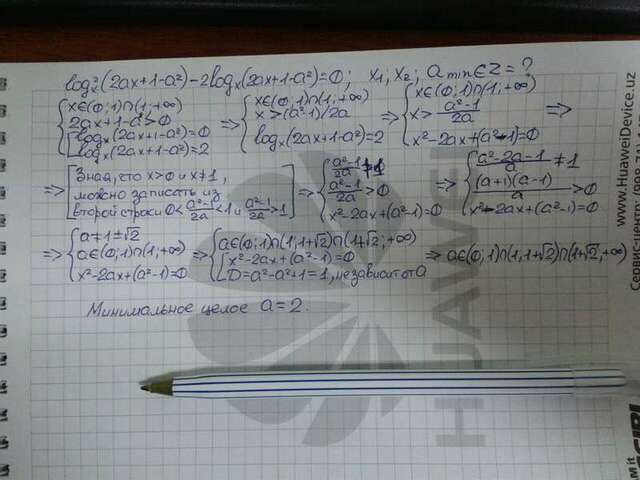 logₓ²(2ax+1-a²)-2logₓ(2ax+1-a²)=0; x₁, x₂; a min∈Z=?
{ x∈(0;1)∩(1;+∞) ; 2ax+1-a²>0 ; [ logₓ(2ax+1-a²)=0 ; logₓ(2ax+1-a²)=2 ⇒ { x∈(0;1)∩(1;+∞) ; x>(a²-1)/2a ; logₓ(2ax+1-a²)=2 ⇒ { x∈(0;1)∩(1;+∞) ; x> a²-1/2a ; x²-2ax+(a²-1)=0 ⇒
⇒ [ Зная, что x>0 и x≠1, можно записать из второй строки 0< a²-1/2a <1 и a²-1/2a >1 ] ⇒ { a²-1/2a ≠1 ; a²-1/2a >0 ; x²-2ax+(a²-1)=0 ⇒ { a²-2a-1/a ≠1 ; (a+1)(a-1)/a >0 ; x²-2ax+(a²-1)=0
⇒ { a≠1±√2 ; a∈(0;1)∩(1;+∞) ; x²-2ax+(a²-1)=0 ⇒ { a∈(0;1)∩(1,1+√2)∩(1+√2;+∞) ; { x²-2ax+(a²-1)=0 ; D=a²-a²+1=1, независит от a ⇒ a∈(0;1)∩(1,1+√2)∩(1+√2,+∞)
Минимальное целое a=2.
HUAWEI
www.HuaweiDevice.uz